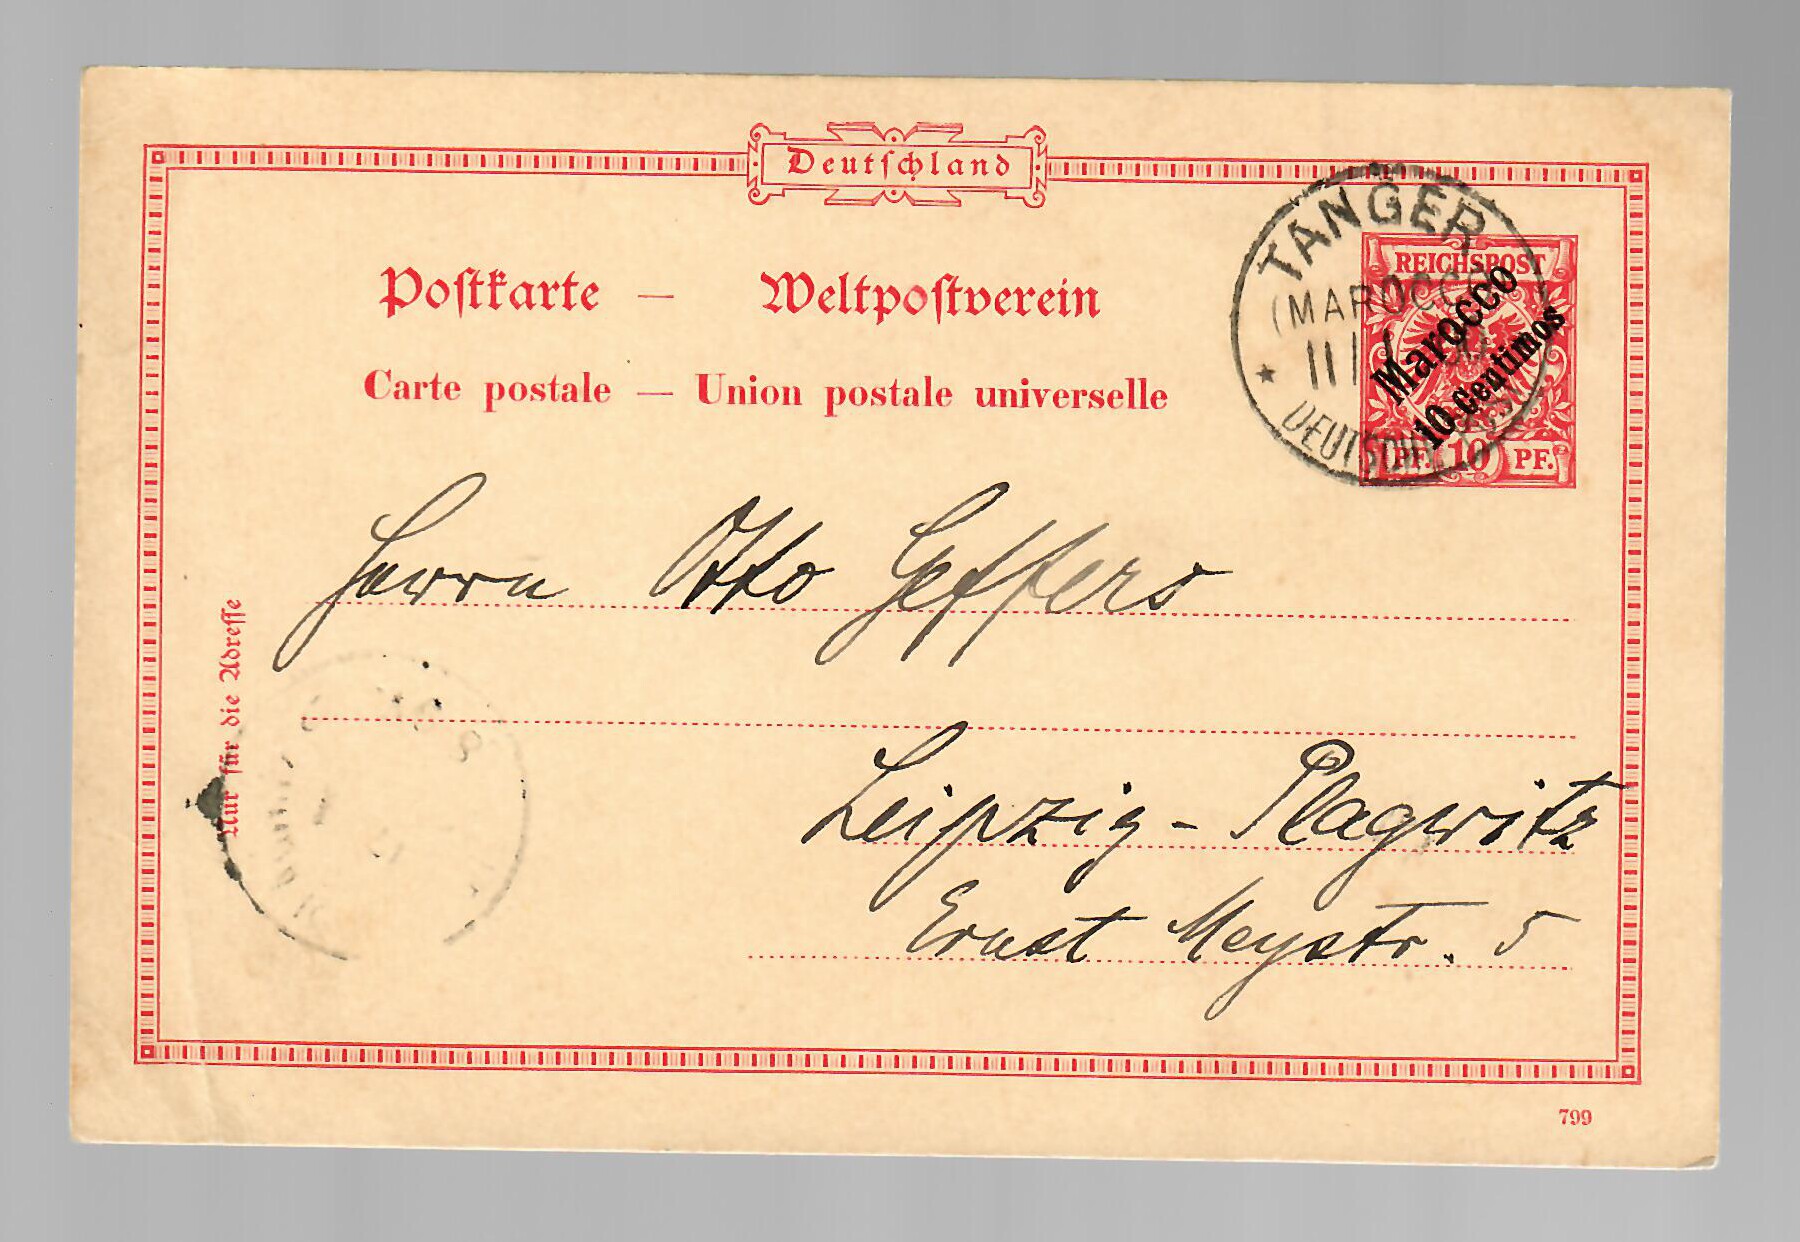 Deutschland
Postkarte — Weltpostverein
Carte postale — Union postale universelle
TANGER
(MAROCCO)
REICHSPOST
Marocco
10 Centimos
PF. 10 PF.
Herrn Otto Geffers
Leipzig - Plagwitz
Ernst Meystr. 5
Nur für die Adresse
799